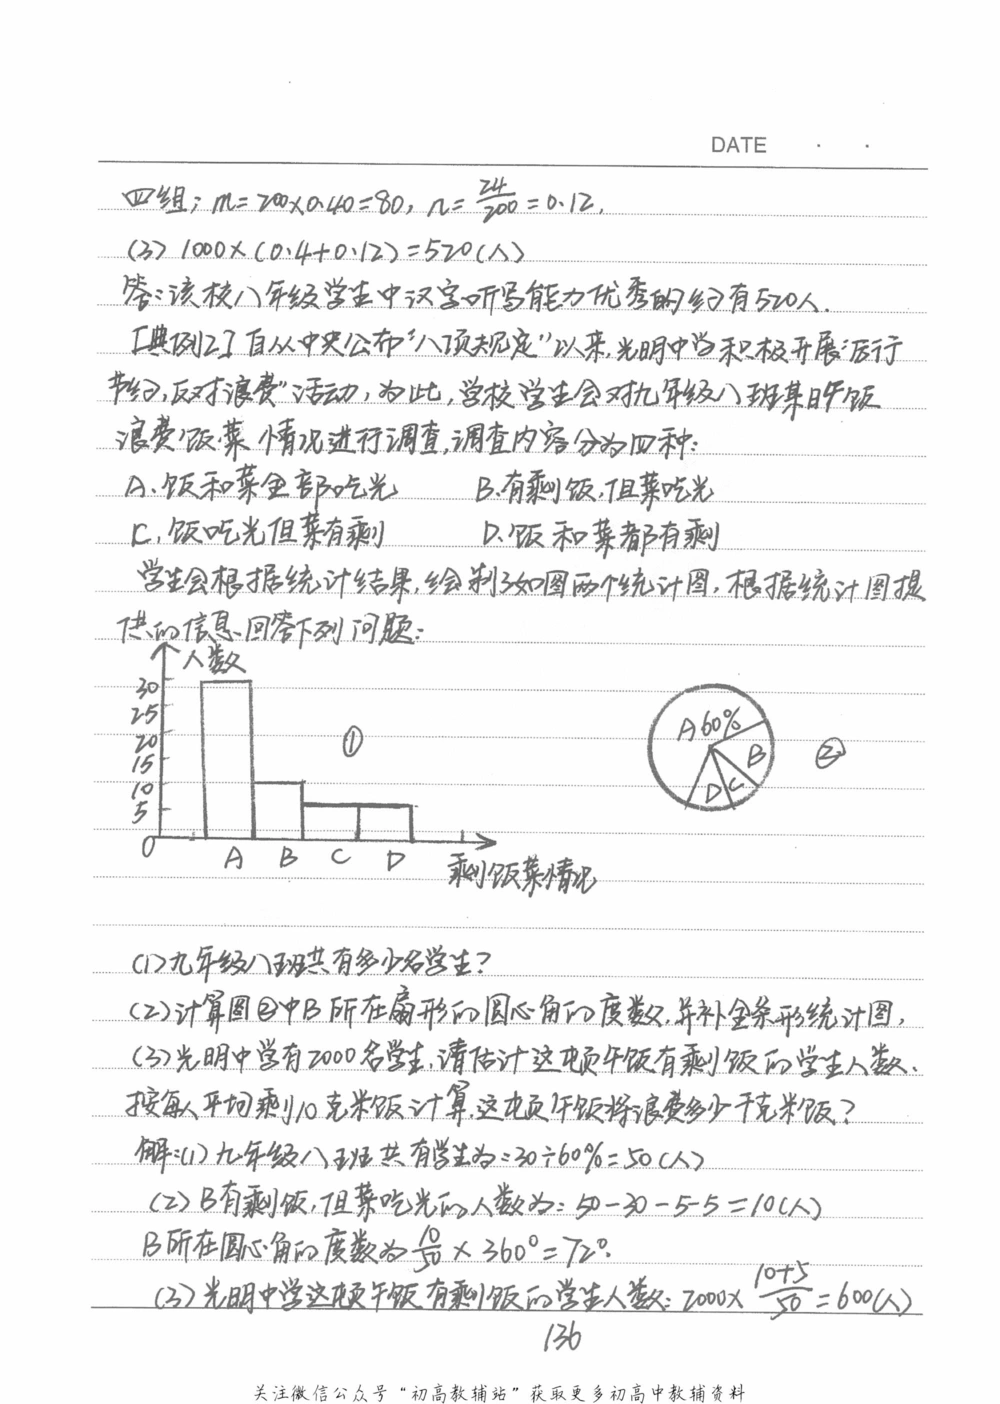 DATE · ·
四组; m=200×0.40=80, n=24/200=0.12.
(3) 1000×(0.4+0.12)=520(人)
答:该校八年级学生中汉字听写能力优秀的约有520人.
[典例2] 自从中央公布“八项规定”以来,光明中学积极开展“厉行
节约,反对浪费”活动,为此,学校学生会对九年级八班某日午饭
浪费饭菜情况进行调查,调查内容分为四种:
A.饭和菜全部吃光 B.有剩饭,但菜吃光
C.饭吃光但菜有剩 D.饭和菜都有剩
学生会根据统计结果,绘制了如图两个统计图,根据统计图提
供的信息回答下列问题:
人数
30
25
20
15
10
5
0
A B C D
剩饭菜情况
①
A 60%
B
C
D
②
(1)九年级八班共有多少名学生?
(2)计算图②中B所在扇形的圆心角的度数,并补全条形统计图,
(3)光明中学有2000名学生,请估计这顿午饭有剩饭的学生人数,
按每人平均剩10克米饭计算,这顿午饭将浪费多少千克米饭?
解:(1)九年级八班共有学生为:30÷60%=50(人)
(2)B有剩饭,但菜吃光的人数为:50-30-5-5=10(人)
B所在圆心角的度数为10/50×360°=72°.
(3)光明中学这顿午饭有剩饭的学生人数:2000×(10+5)/50=600(人)
136
关注微信公众号“初高教辅站”获取更多初高中教辅资料